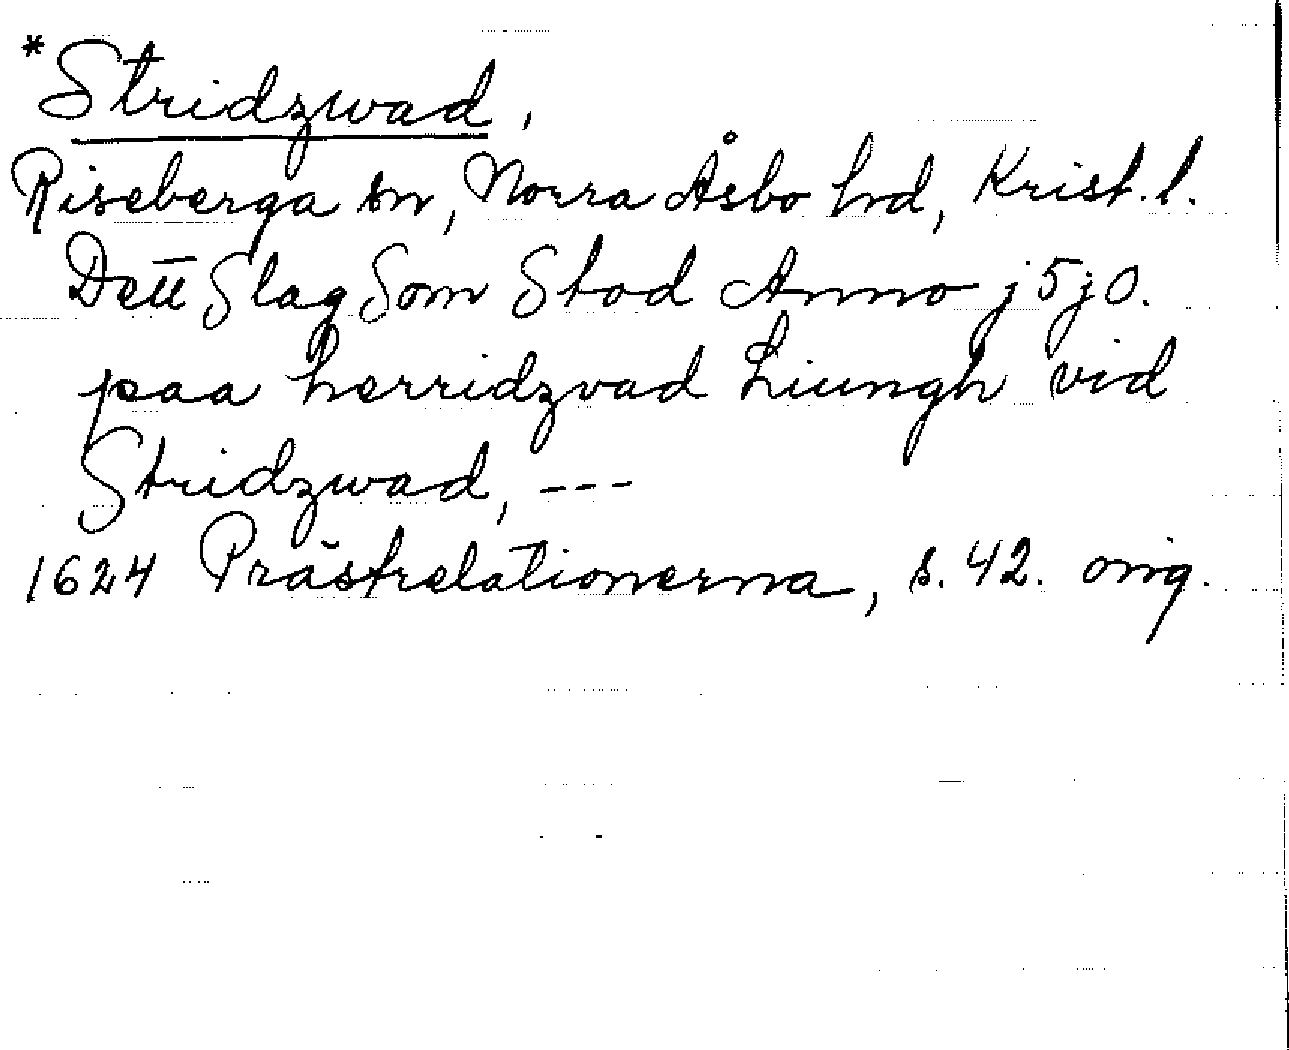 *Stridzwad,
Riseberga sn, Norra Åsbo hd, Krist. l.
Dett Slag Som Stod Anno j5j0.
paa herridzvad Liungh vid
Stridzwad, ---
1624 Prästrelationerna, s. 42. orig.